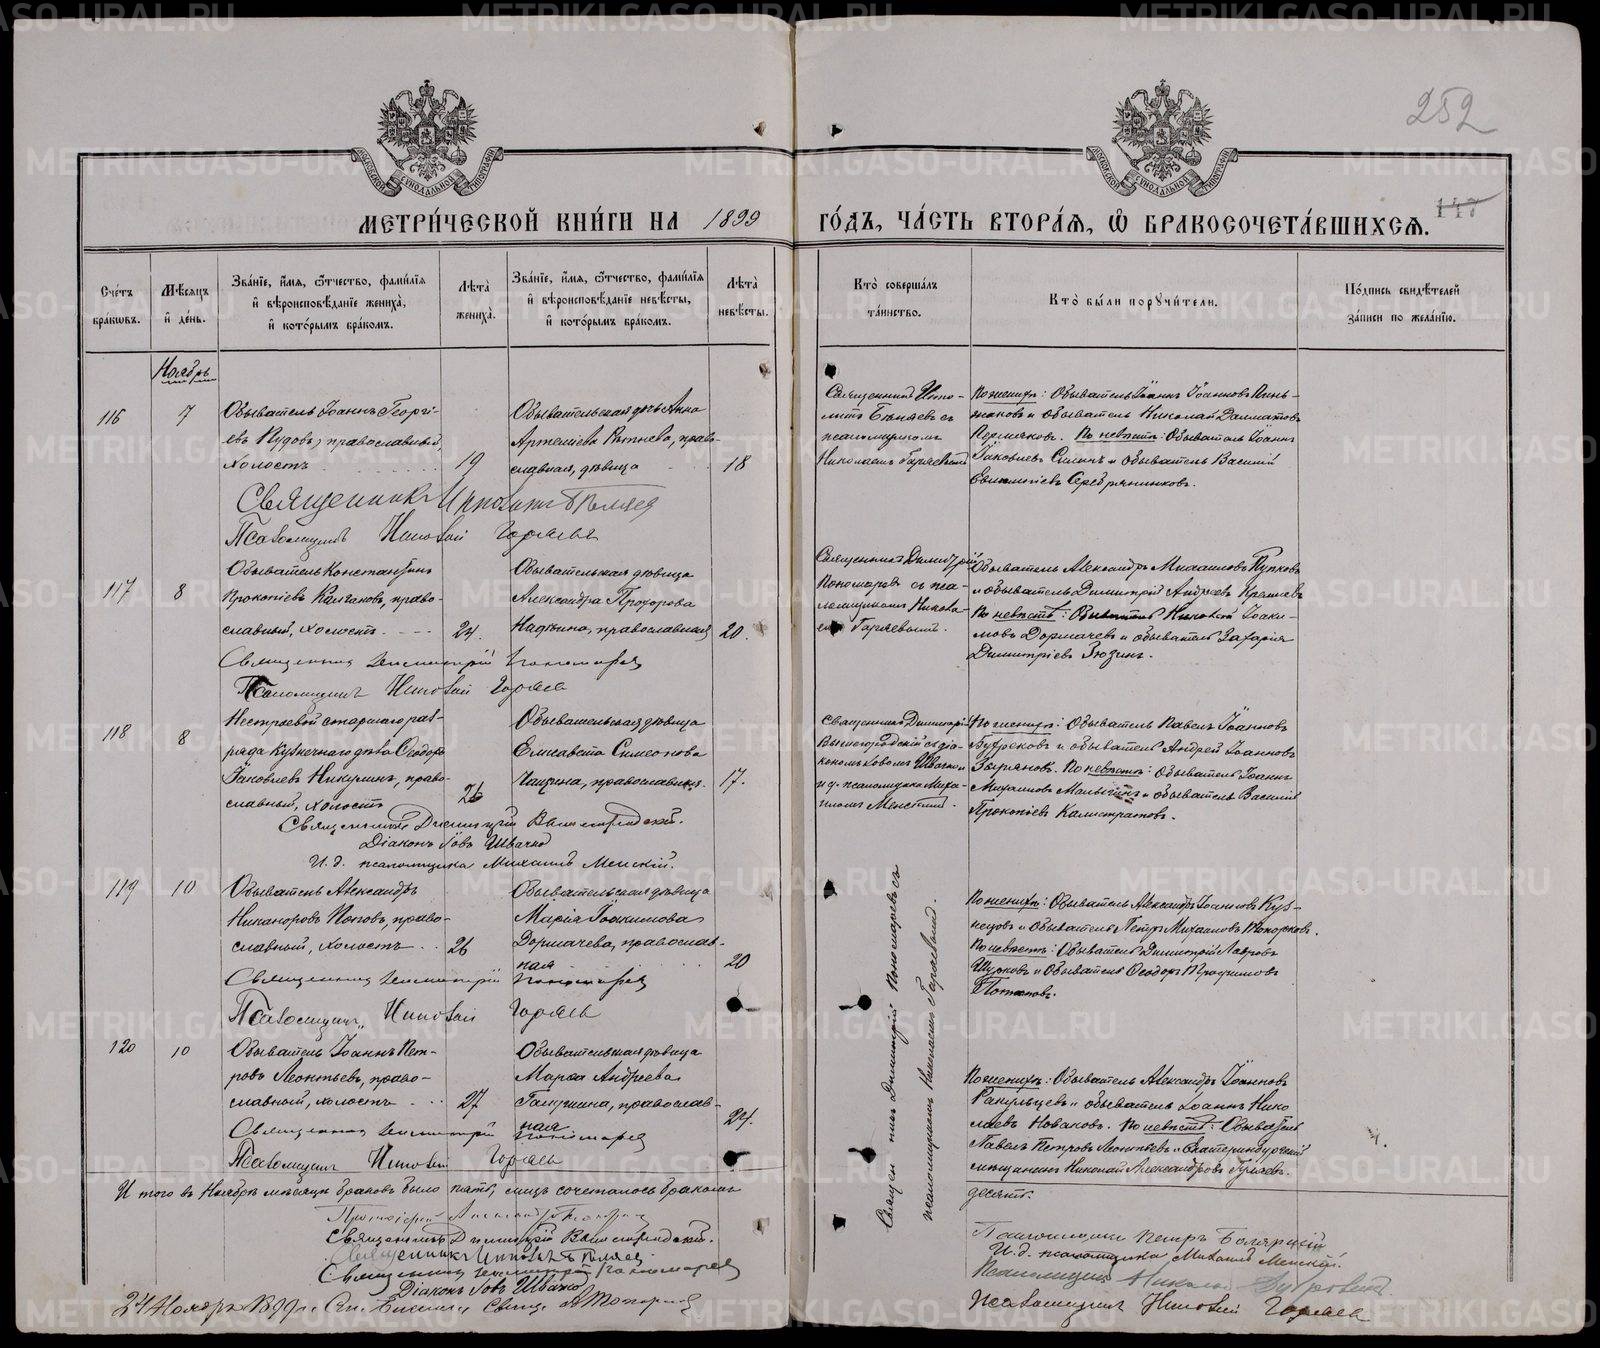 METRIKI.GASO-URAL.RU
252
147
МОСКОВСКОЙ СѴНОДАЛЬНОЙ ТИПОГРАФІИ
МЕТРИ́ЧЕСКОЙ КНИ́ГИ НА 1899 ГО́ДЪ, ЧА́СТЬ ВТОРА́Я, Ѡ БРАКОСОЧЕТА́ВШИХСЯ.
Сче́тъ бра́ковъ.
Мѣ́сяцъ и́ де́нь.
Зва́нїе, и́мя, ѻ́тчество, фами́лїя и́ вѣроисповѣ́данїе жениха̀, и́ кото́рымъ бра́комъ.
Лѣ́та жениха̀.
Зва́нїе, и́мя, ѻ́тчество, фами́лїя и́ вѣроисповѣ́данїе невѣ́сты, и́ кото́рымъ бра́комъ.
Лѣ́та невѣ́сты.
Кто̀ соверша́лъ та́инство.
Кто̀ бы́ли порꙋчи́тели.
По́дпись свидѣ́телей за́писи по жела́нїю.
Ноябрь
116
7
Обыватель Іоаннъ Георгі-
евъ Пудовъ, православный,
холостъ
19
Обывательская дочь Анна
Артемьева, право-
славная, дѣвица
18
Священникъ Иппо-
литъ Бѣляевъ съ
псаломщикомъ
Николаемъ Гаряевымъ
По женихѣ: Обыватель Іоаннъ Іоанновъ
и обыватель Николай Далматовъ
Пермяковъ. По невѣстѣ: Обыватель Іоаннъ
Іаковлевъ Силинъ и обыватель Василій
Евфиміевъ Серебрянниковъ.
Священникъ Ипполитъ Бѣляев
Псаломщикъ Николай Горяевъ
117
8
Обыватель Константинъ
Прокопіевъ Калгановъ, право-
славный, холостъ
24.
Обывательская дѣвица
Александра Прохорова
православная
20.
Священникъ Димитрій
Пономаревъ съ пса-
ломщикомъ Никола-
емъ Гаряевымъ.
Обыватель Александръ Михаиловъ Пупковъ
и обыватель Димитрій Андреевъ
По невѣстѣ: Обыватель Николай Іоаки-
мовъ Дормачевъ и обыватель Захарія
Димитріевъ Зюзинъ.
Священникъ Димитрій Пономаревъ
Псаломщикъ Николай Горяев
118
8
Нестроевой старшаго раз-
ряда кузнечнаго дѣла Ѳеодоръ
Іаковлевъ Никулинъ, право-
славный, холостъ
26
Обывательская дѣвица
Елисавета Симеонова
православная
17.
Священникъ Димитрій
Вышегородскій съ діа-
кономъ Іовомъ Швачко и
и.д. псаломщика Миха-
иломъ Менскимъ.
По женихѣ: Обыватель Павелъ Іоанновъ
и обыватель Андрей Іоанновъ
Зыряновъ. По невѣстѣ: Обыватель Іоаннъ
Михаиловъ Малыгинъ и обыватель Василій
Прокопіевъ Калистратовъ.
Священникъ Димитрій Вышегородскій.
Діаконъ Іовъ Швачко
И.д. псаломщика Михаилъ Менскій.
119
10
Обыватель Александръ
Никаноровъ Поповъ, право-
славный, холостъ
26
Обывательская дѣвица
Марія Іоакимова
Дормачева, православ-
ная
20
Священникъ Димитрій Пономаревъ съ
псаломщикомъ Николаемъ Гаряевымъ.
По женихѣ: Обыватель Александръ Іоанновъ Куз-
нецовъ и обыватель Петръ Михаиловъ Топорковъ.
По невѣстѣ: Обыватель Димитрій Лавровъ
и обыватель Ѳеодоръ Трофимовъ
Потаповъ.
Священникъ Димитрій Пономаревъ
Псаломщикъ Николай Горяевъ
120
10
Обыватель Іоаннъ Пет-
ровъ Леонтьевъ, право-
славный, холостъ
27
Обывательская дѣвица
Марѳа Андреева
православ-
ная
24.
По женихѣ: Обыватель Александръ Іоанновъ
и обыватель Іоаннъ Нико
лаевъ Новаковъ. По невѣстѣ: Обыватель
Павелъ Петровъ Леонтьевъ и Екатеринбургскій
мѣщанинъ Николай Александровъ Гуляевъ.
Священникъ Димитрій Пономаревъ
Псаломщикъ Николай Горяевъ
И того въ Ноябрѣ мѣсяцѣ браковъ было пять, лицъ сочеталось бракомъ
десять.
Протоіерей
Священникъ Димитрій Вышегородскій.
Священникъ Ипполитъ Бѣляев.
Священникъ Димитрій Пономаревъ
Діаконъ Іовъ Швачко
24 Ноября 1899 г.
Псаломщикъ Петръ
И.д. псаломщика Михаилъ Менскій.
Псаломщикъ Николай
Псаломщикъ Николай Горяевъ